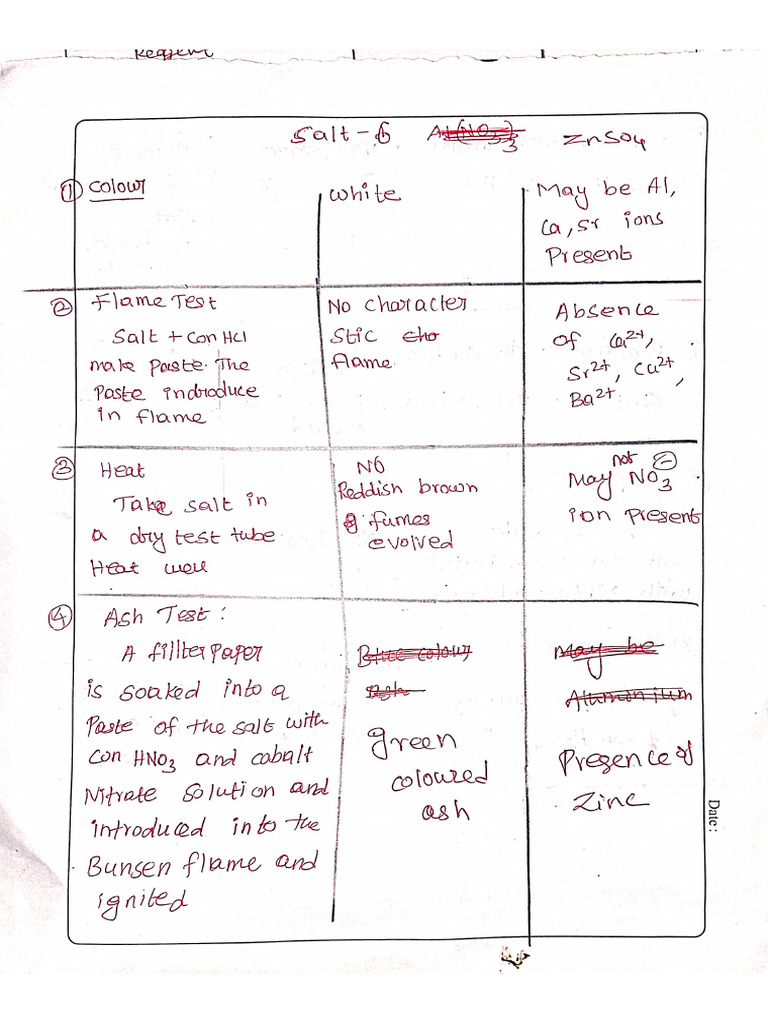 Reagent
Salt-6 Al(NO3)3 ZnSO4
① Colour
White
May be Al,
Ca, Sr ions
Present
② Flame Test
Salt + Con HCl
make Paste. The
Paste indroduce
in flame
No Character
Stic cho
flame
Absence
of Ca2+,
Sr2+, Cu2+,
Ba2+
③ Heat
Take salt in
a dry test tube
Heat well
No
Reddish brown
fumes
evolved
May not NO3-
ion Present
④ Ash Test:
A fillter Paper
is soaked into a
Paste of the salt with
Con HNO3 and cobalt
Nitrate solution and
introduced into the
Bunsen flame and
ignited
Blue colour
Ash
green
coloured
ash
May be
Alumonium
Presence of
Zinc
Date: